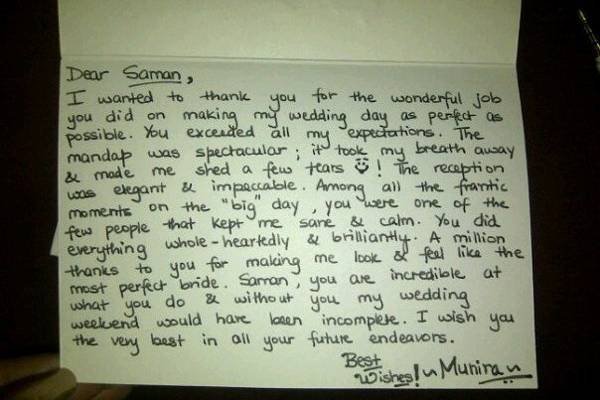 Dear Saman,
I wanted to thank you for the wonderful job
you did on making my wedding day as perfect as
possible. You exceeded all my expectations. The
mandap was spectacular; it took my breath away
& made me shed a few tears ☺! The reception
was elegant & impaccable. Among all the frantic
moments on the "big" day, you were one of the
few people that kept me sane & calm. You did
everything whole-heartedly & brilliantly. A million
thanks to you for making me look & feel like the
most perfect bride. Saman, you are incredible at
what you do & without you my wedding
weekend would have been incomplete. I wish you
the very best in all your future endeavors.
Best
Wishes! ~ Munira ~